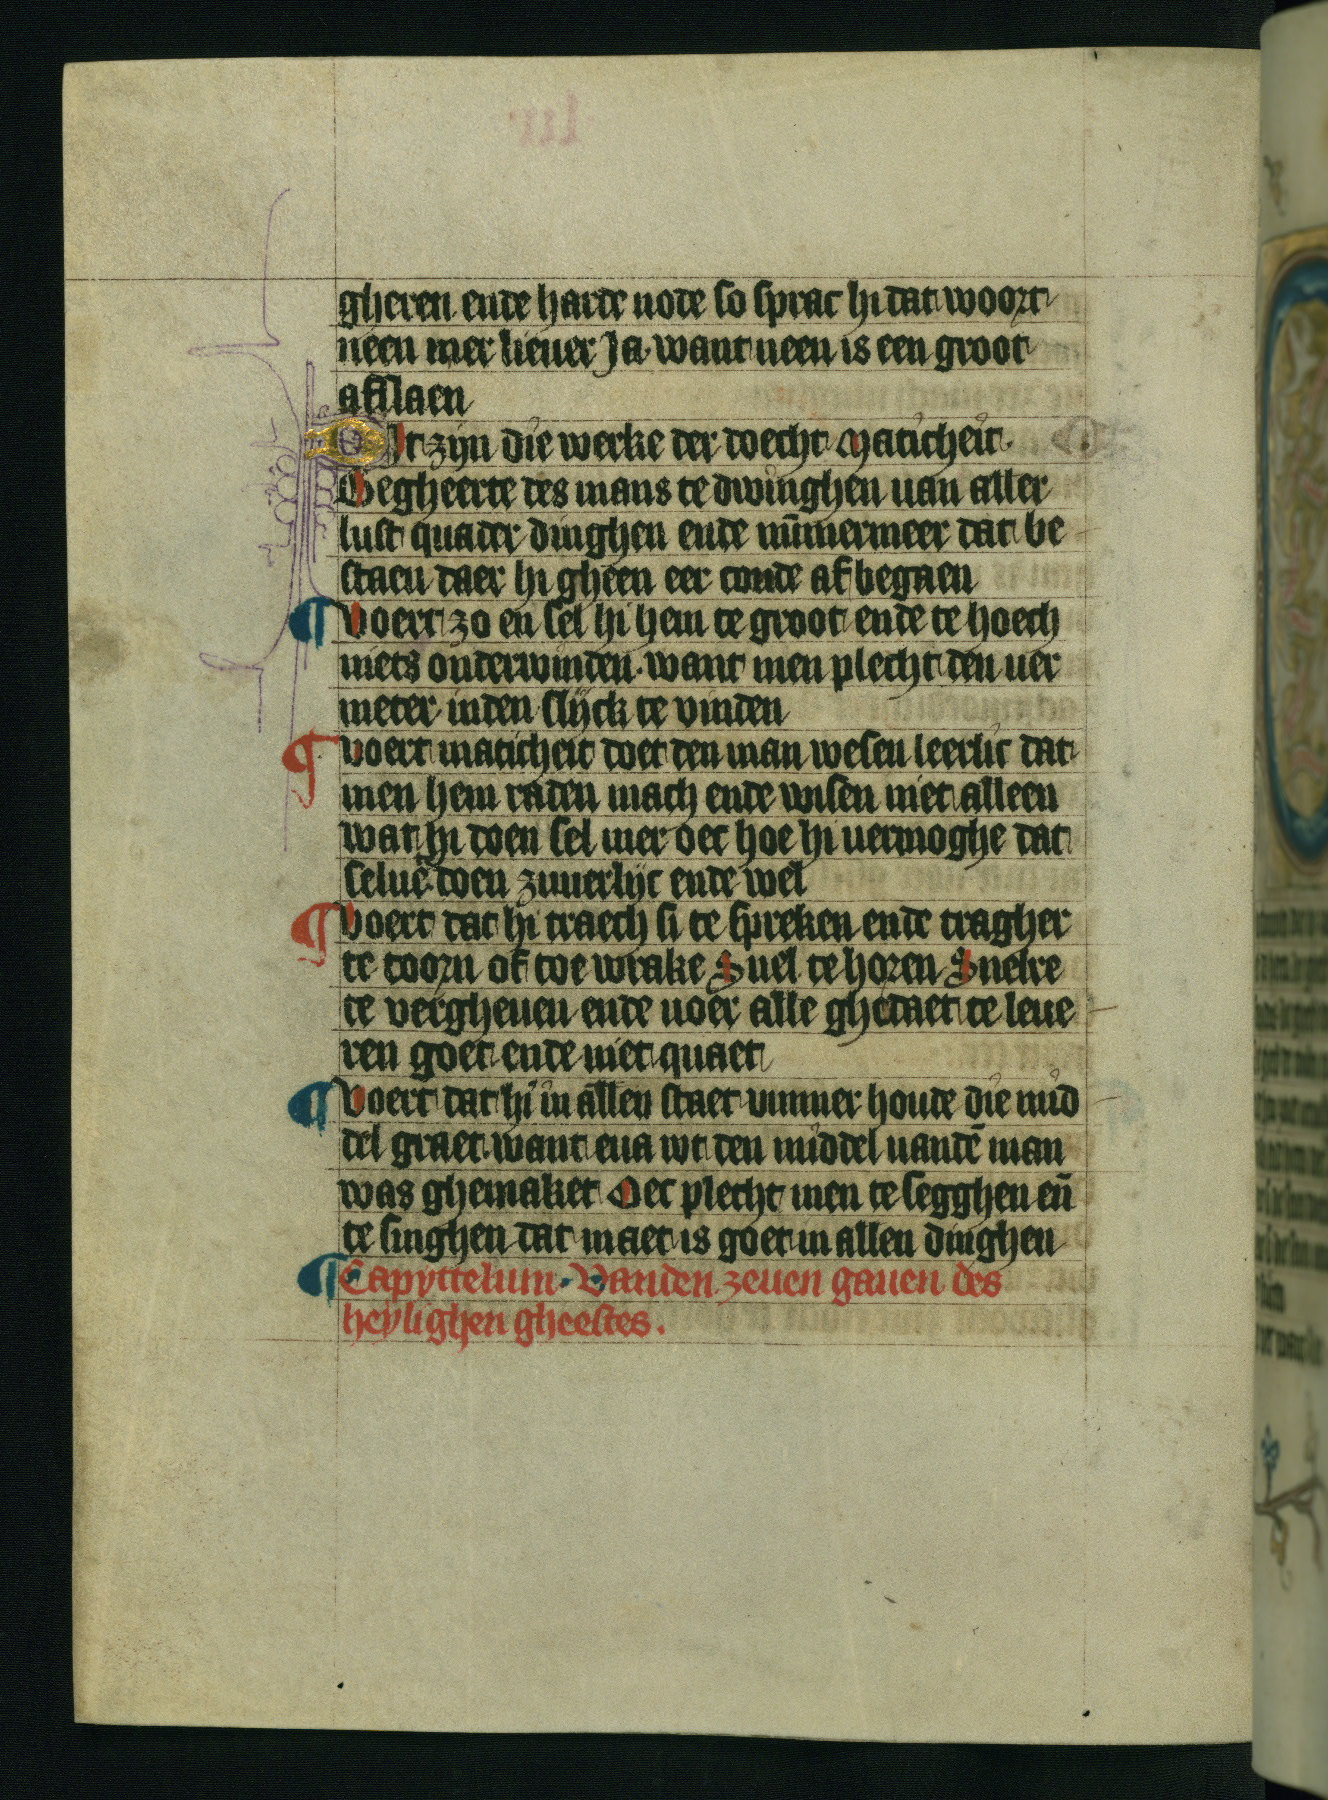 gheren ende harde node so sprac hi dat woort
neen mer lieuer Ja want neen is een groot
afslaen
DIt zijn die werke der doecht Maticheit.
Begheerte des mans te dwinghen uan aller
lust quader dinghen ende nūmermeer dat be
staen daer hi gheen eer conde af begaen
¶ Voert zo en sel hi hem te groot ende te hoech
niets onderwinden. want men plecht den uer
meter inden slijck te vinden
¶ Voert maticheit doet den man wesen leerlic dat
men hem raden mach ende wisen niet alleen
wat hi doen sel mer oec hoe hi uermoghe dat
selue doen zuuerlijc ende wel
¶ Voert dat hi traech si te spreken ende tragher
te toorn of toe wrake Snel te horen Snelre
te vergheuen ende uoer alle ghedaet te leue
ren goet ende niet quaet
¶ Voert dat hi in allen staet vmmer houde die mid
del graet. want eua wt den middel uandē man
was ghemaket Oec plecht men te segghen eñ
te singhen dat maet is goet in allen dinghen
¶ Capyttelum. Vanden zeuen gauen des
heylighen gheestes.